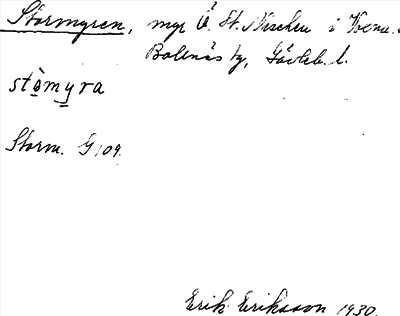 Stormyren, myr Ö. St. Nischen i Voxna.
Bollnäs hg, Gävleb. l.
stòmyra
Storm. G 109.
Erik Eriksson 1930.